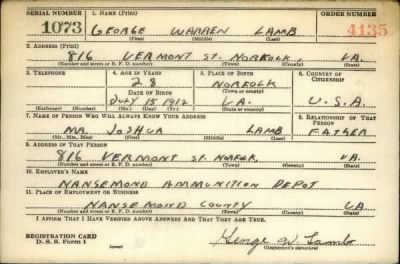 SERIAL NUMBER 1. NAME (Print) ORDER NUMBER
1073 GEORGE WARREN LAMB 4135
(First) (Middle) (Last)
2. ADDRESS (Print)
816 VERMONT ST. NORFOLK, VA.
(Number and street or R. F. D. number) (Town) (County) (State)
3. TELEPHONE 4. AGE IN YEARS 5. PLACE OF BIRTH 6. COUNTRY OF CITIZENSHIP
28 NORFOLK
DATE OF BIRTH (Town or county)
JULY 15 1912 VA. U.S.A.
(Exchange) (Number) (Mo.) (Day) (Yr.) (State or country)
7. NAME OF PERSON WHO WILL ALWAYS KNOW YOUR ADDRESS 8. RELATIONSHIP OF THAT PERSON
MR. JOSHUA LAMB FATHER
(Mr., Mrs., Miss) (First) (Middle) (Last)
9. ADDRESS OF THAT PERSON
816 VERMONT ST. NORFOLK VA.
(Number and street or R. F. D. number) (Town) (County) (State)
10. EMPLOYER'S NAME
NANSEMOND AMMUNITION DEPOT
11. PLACE OF EMPLOYMENT OR BUSINESS
NANSEMOND COUNTY VA
(Number and street or R. F. D. number) (Town) (County) (State)
I AFFIRM THAT I HAVE VERIFIED ABOVE ANSWERS AND THAT THEY ARE TRUE.
REGISTRATION CARD
D. S. S. Form 1 George W. Lamb
(Registrant's signature)